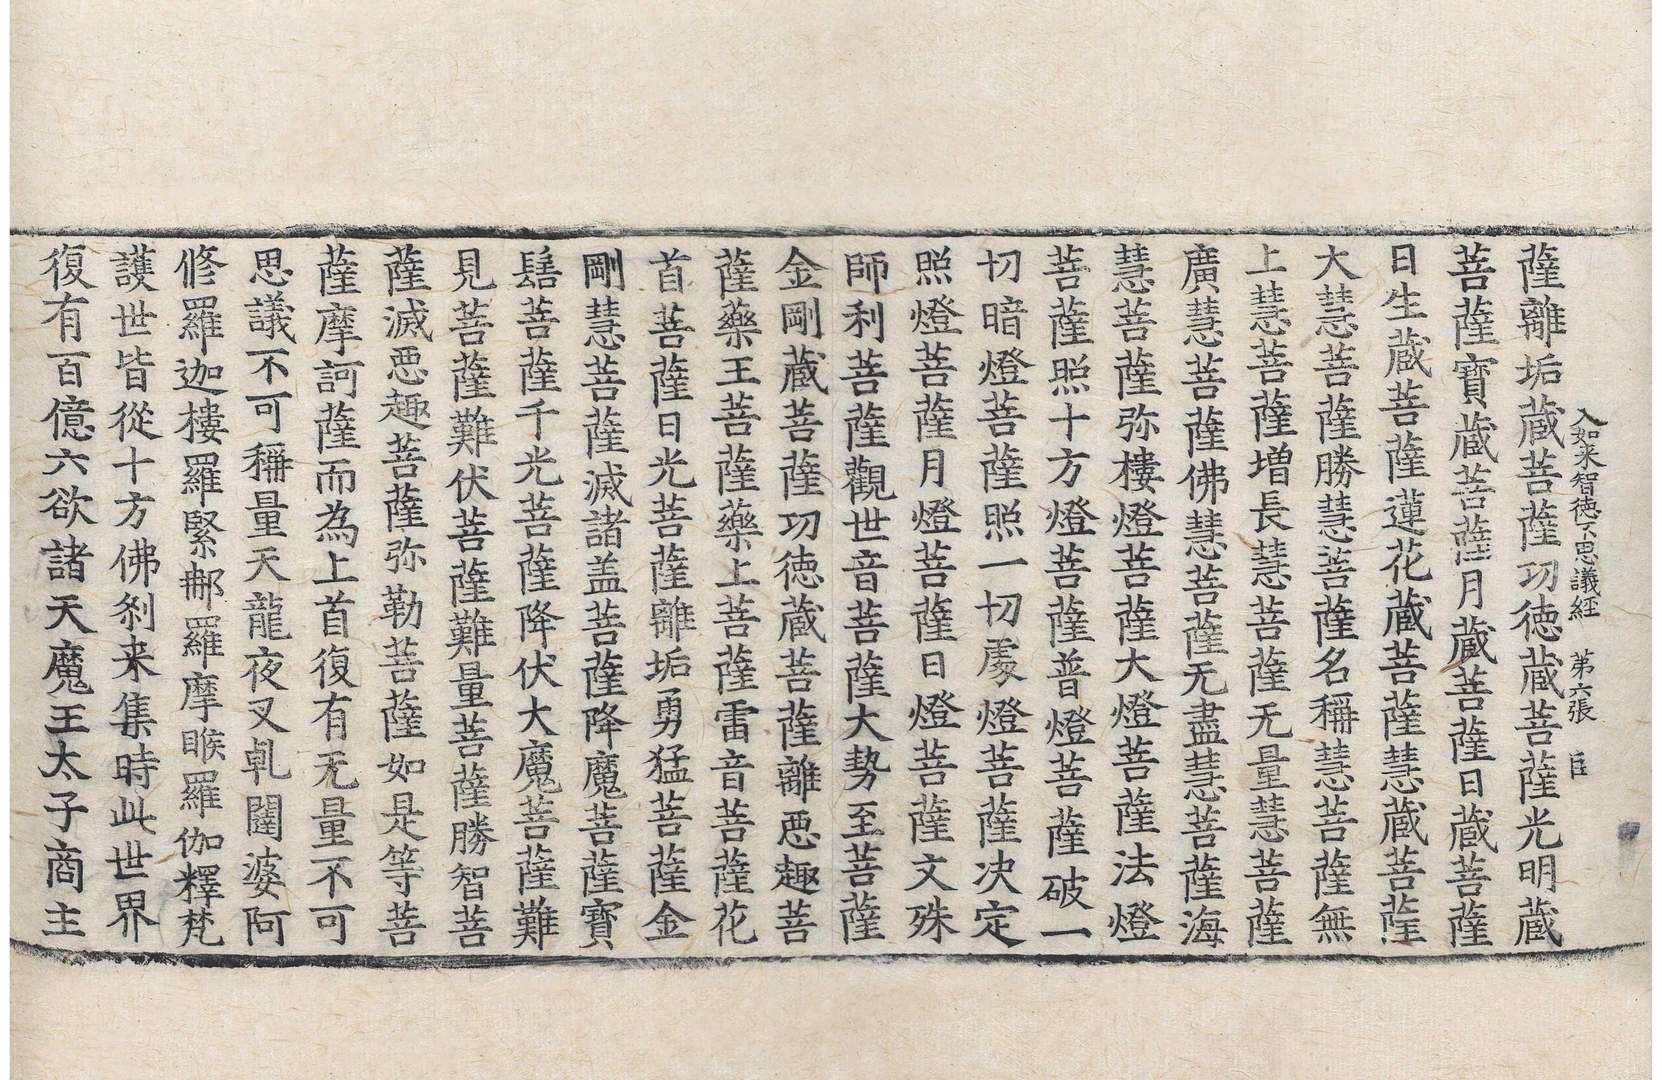 入如来智徳不思議経 第六張 臣
薩離垢蔵菩薩功徳蔵菩薩光明蔵
菩薩寶蔵菩薩月蔵菩薩日蔵菩薩
日生蔵菩薩蓮花蔵菩薩慧蔵菩薩
大慧菩薩勝慧菩薩名稱慧菩薩無
上慧菩薩増長慧菩薩无量慧菩薩
廣慧菩薩佛慧菩薩无盡慧菩薩海
慧菩薩弥樓燈菩薩大燈菩薩法燈
菩薩照十方燈菩薩普燈菩薩破一
切暗燈菩薩照一切處燈菩薩决定
照燈菩薩月燈菩薩日燈菩薩文殊
師利菩薩觀世音菩薩大勢至菩薩
金剛蔵菩薩功徳蔵菩薩離悪趣菩
薩藥王菩薩藥上菩薩雷音菩薩花
首菩薩日光菩薩離垢勇猛菩薩金
剛慧菩薩滅諸盖菩薩降魔菩薩寶
髻菩薩千光菩薩降伏大魔菩薩難
見菩薩難伏菩薩難量菩薩勝智菩
薩滅悪趣菩薩弥勒菩薩如是等菩
薩摩訶薩而為上首復有无量不可
思議不可稱量天龍夜叉乹闥婆阿
脩羅迦樓羅緊那羅摩睺羅伽釋梵
護世皆從十方佛刹来集時此世界
復有百億六欲諸天魔王太子商主